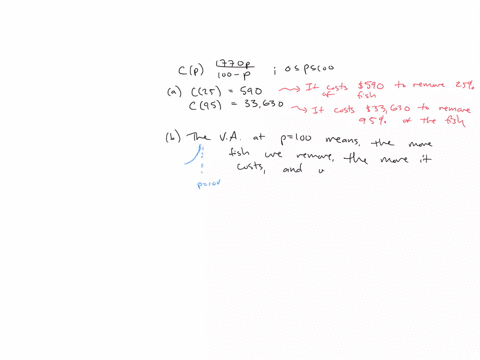 C(p) 1770p / 100-p ; 0≤p≤100
(a) C(25) = 590 → It costs $590 to remove 25% of fish
C(95) = 33,630 → It costs $33,630 to remove 95% of the fish
(b) The V.A. at p=100 means, the more
fish we remove, the more it
costs, and
p=100